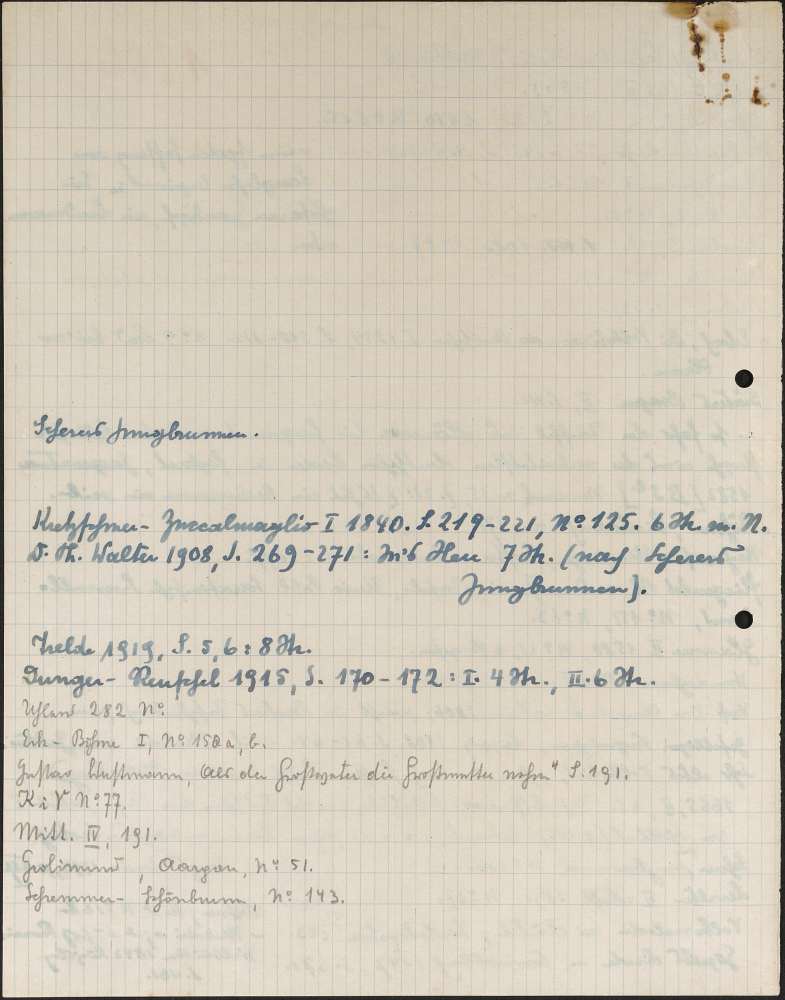 Scherers Jungbrunnen.
Kretzschmer- Zuccalmaglio I 1840. S. 219-221, Nº 125. 6 Str. m. N.
D. Th. Walter 1908, S. 269-271: Herr 7 Str. (nach Scherers
Jungbrunnen).
1919, S. 5, 6: 8 Str.
Dunger- Reuschel 1915, S. 170-172: I. 4 Str., II. 6 Str.
Uhland 282 Nº.
Erk- Böhme I, Nº 158 a, b.
Gustav Wustmann, "Als der Großvater die Großmutter nahm" S. 191.
K i V Nº 77.
Mitt. IV, 191.
Grolimund, Aargau, Nº 51.
Schremmer- Schönbrunn, Nº 143.